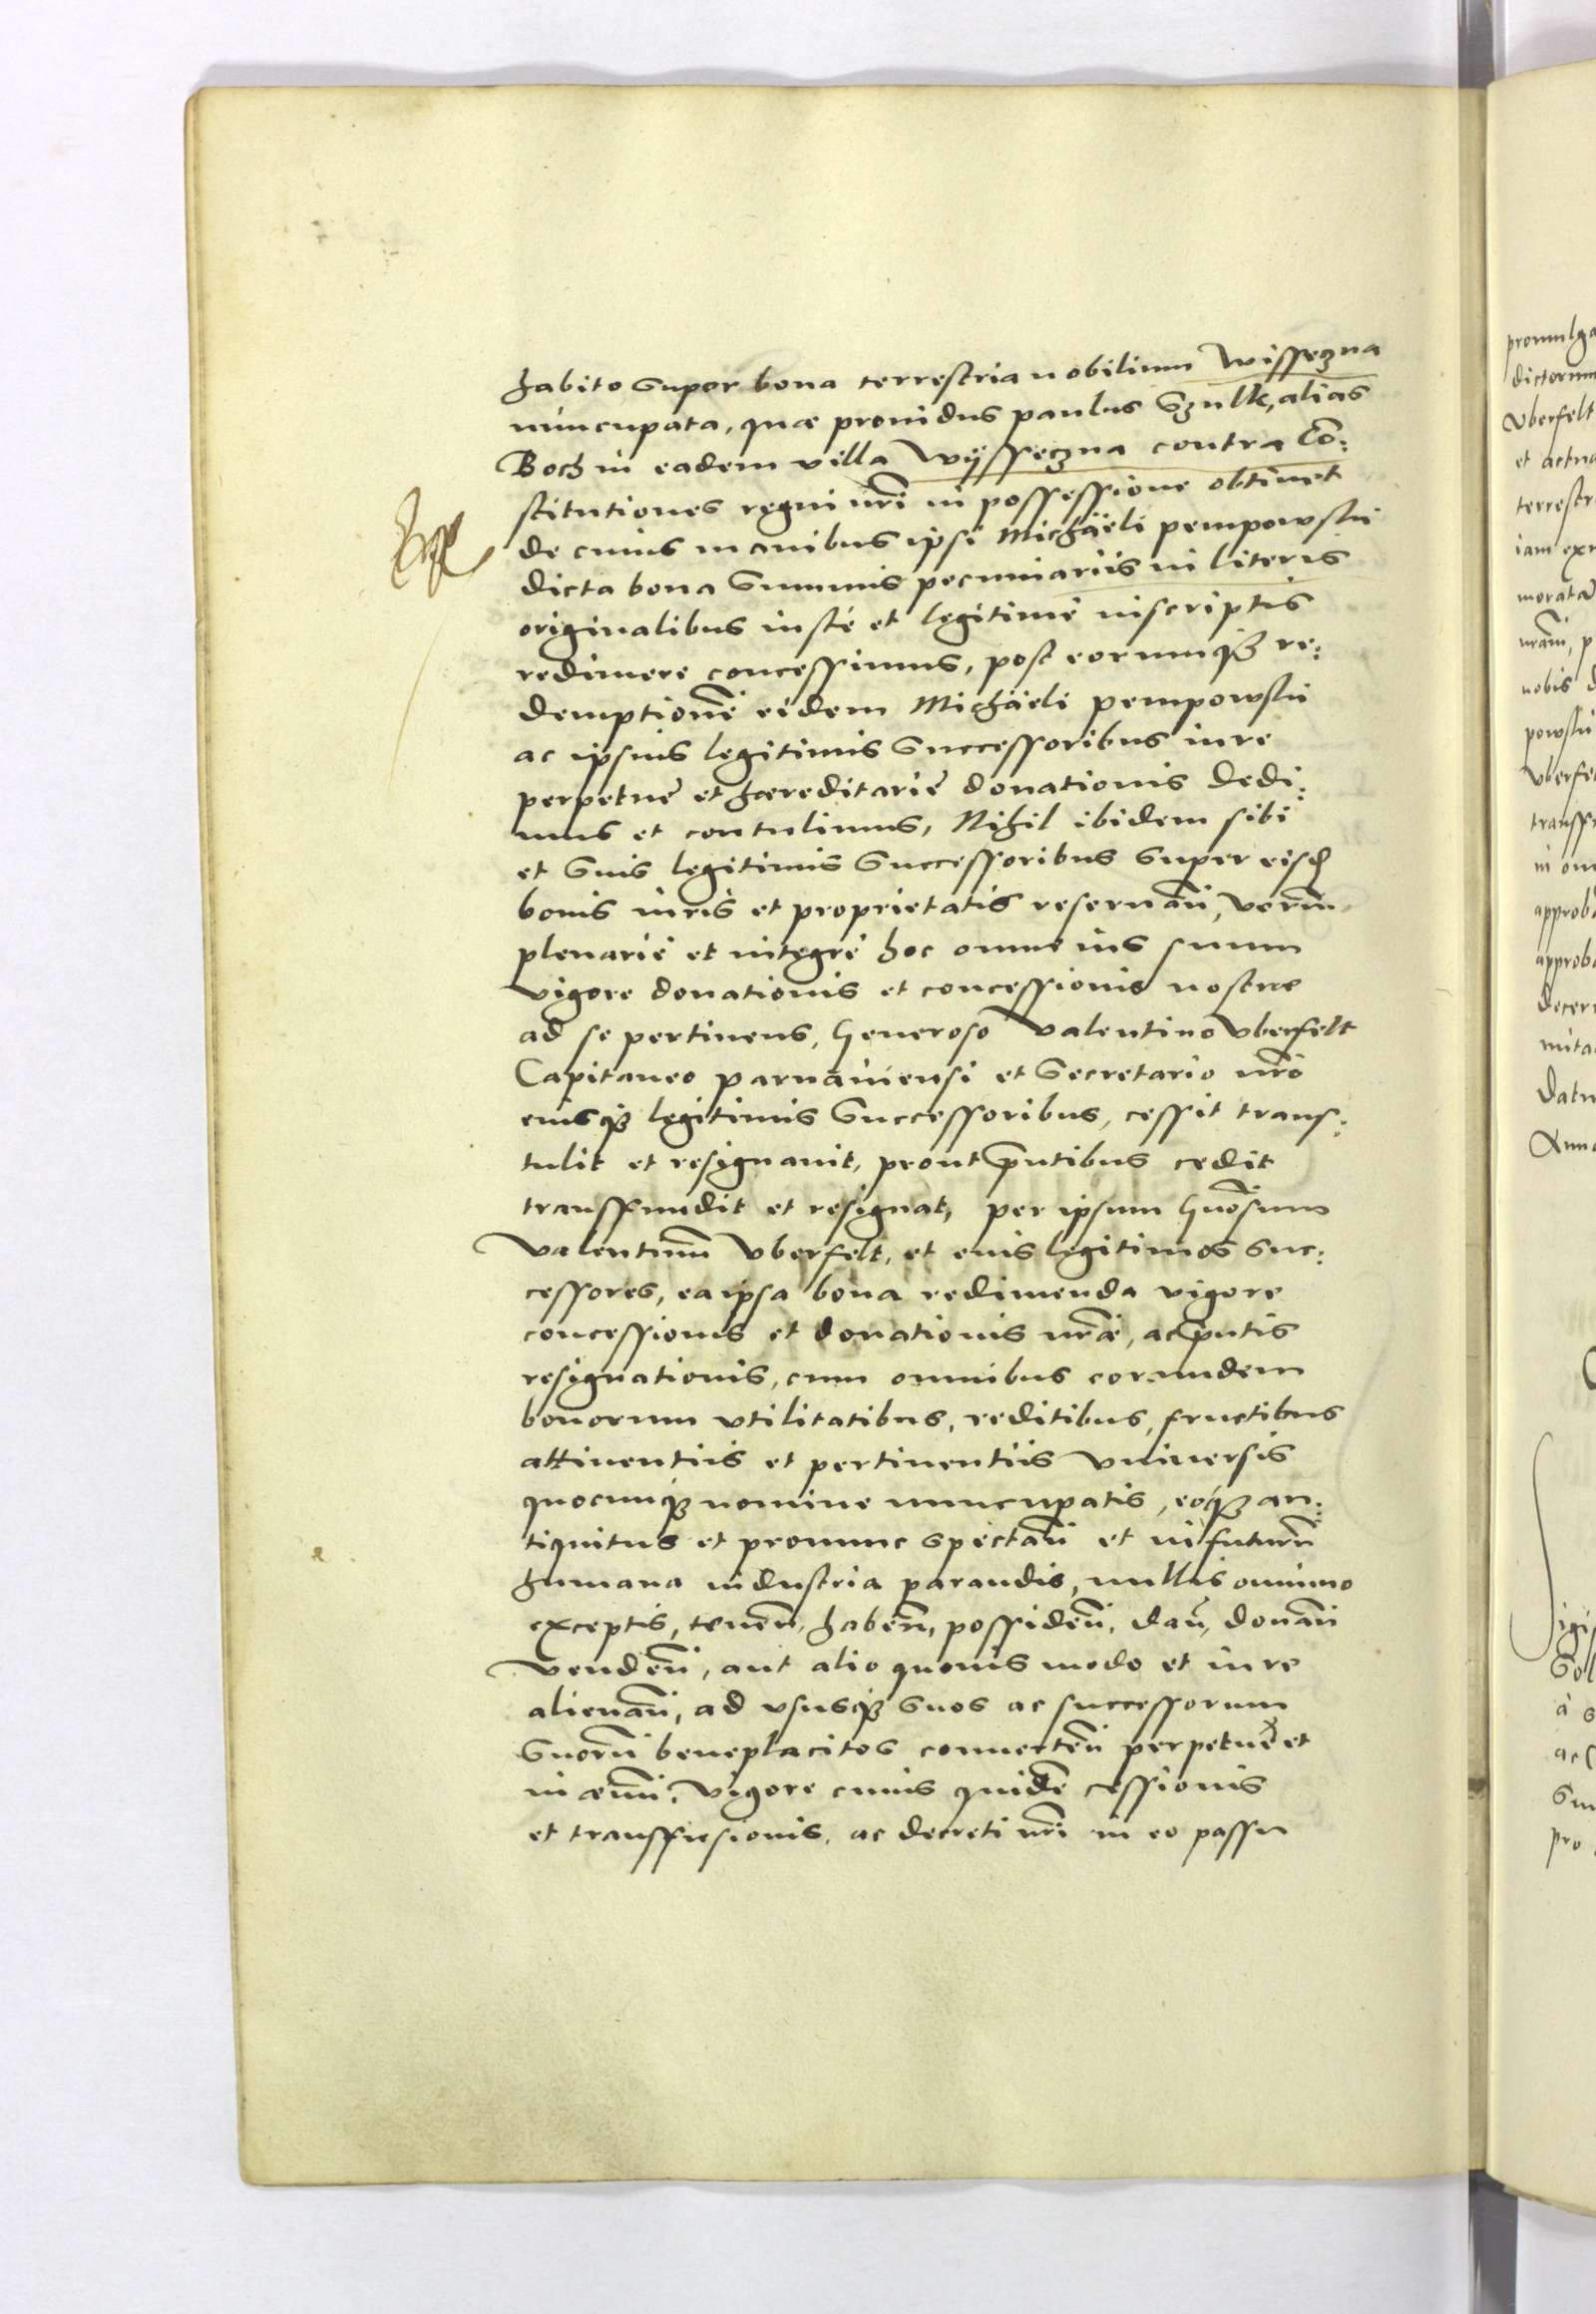 habito super bona terrestria nobilium Wisseczna
nuncupata, quæ prouidus paulus Szulk, alias
Boch in eadem villa Wÿsseczna contra Cō:
stitutiones regni nr̃i in possessione obtinet
de cuius manibus ipsi Michaëli pempowskii
dicta bona Summis pecuniariis in literis
originalibus iustè et legitimè inscriptis
redimere concessimus, post eorumq3 re:
demptionē eidem Michaëli pempowskii
ac ipsius legitimis Successoribus iure
perpetuè et hæreditariè donationis Dedi:
mus et contulimus, Nihil ibidem sibi
et Suis legitimis Successoribus super eisd
bonis iuris et proprietatis reseruañ, verum
plenariè et integrè hoc omne ius suum
vigore donationis et concessionis nostræ
ad se pertinens, Generoso Valentino Vberfelt
Capitaneo parnaŭiensi et Secretario nr̃o
eiusq3 legitimis Successoribus, cessit trans:
tulit et resignauit, prout p̃ntibus cedit
transfundit et resignat, per ipsum Gñosum
Valentinū Vberfelt, et eius legitimos suc:
cessores, ea ipsa bona redimenda vigore
concessionis et donationis nr̃æ, ac p̃ntis
resignationis, cum omnibus eorundem
bonorum vtilitatibus, reditibus, fructibus
attinentiis et pertinentiis vniuersis
quocunq3 nomine nuncupatis, eoq3 an:
tiquitus et pronunc spectañ et in futurū
humana industria parandis, nullis omnino
exceptis, teneñ, habeñ, possideñ, dañ, donañ
vendeñ, aut alio quouis modo et iure
alienañ, ad vsusq3 suos ac successorum
suorū beneplacitos conuerteñ perpetuè et
in æuū. Vigore cuius quidē cessionis
et transfusionis, ac decreti nr̃i in eo passu